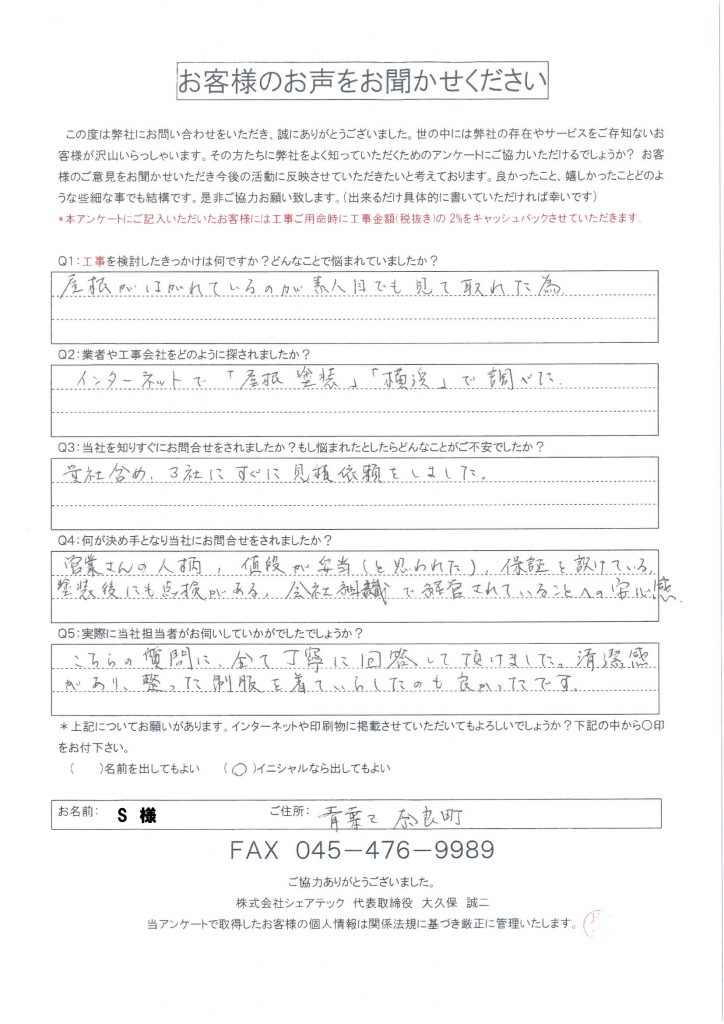 お客様のお声をお聞かせください
この度は弊社にお問い合わせをいただき、誠にありがとうございました。世の中には弊社の存在やサービスをご存知ないお
客様が沢山いらっしゃいます。その方たちに弊社をよく知っていただくためのアンケートにご協力いただけるでしょうか? お客
様のご意見をお聞かせいただき今後の活動に反映させていただきたいと考えております。良かったこと、嬉しかったことどのよ
うな些細な事でも結構です。是非ご協力お願い致します。(出来るだけ具体的に書いていただければ幸いです)
*本アンケートにご記入いただいたお客様には工事ご用命時に工事金額(税抜き)の 2%をキャッシュバックさせていただきます.
Q1:工事を検討したきっかけは何ですか?どんなことで悩まれていましたか?
屋根がはがれているのが素人目でも見て取れた為.
Q2:業者や工事会社をどのように探されましたか?
インターネットで「屋根 塗装」「横浜」で調べた.
Q3:当社を知りすぐにお問合せをされましたか?もし悩まれたとしたらどんなことがご不安でしたか?
貴社含め、3社にすぐに見積依頼をしました。
Q4:何が決め手となり当社にお問合せをされましたか?
営業さんの人柄, 値段が妥当(と思われた), 保証を設けている,
塗装後にも点検がある, 会社組織で経営されていることへの安心感.
Q5:実際に当社担当者がお伺いしていかがでしたでしょうか?
こちらの質問に、全て丁寧に回答して頂けました。清潔感
があり、整った制服を着ていらしたのも良かったです。
*上記についてお願いがあります。インターネットや印刷物に掲載させていただいてもよろしいでしょうか?下記の中から〇印
をお付下さい。
( )名前を出してもよい (○)イニシャルなら出してもよい
お名前: S 様 ご住所: 青葉区 奈良町
FAX 045-476-9989
ご協力ありがとうございました。
株式会社シェアテック 代表取締役 大久保 誠二
当アンケートで取得したお客様の個人情報は関係法規に基づき厳正に管理いたします。